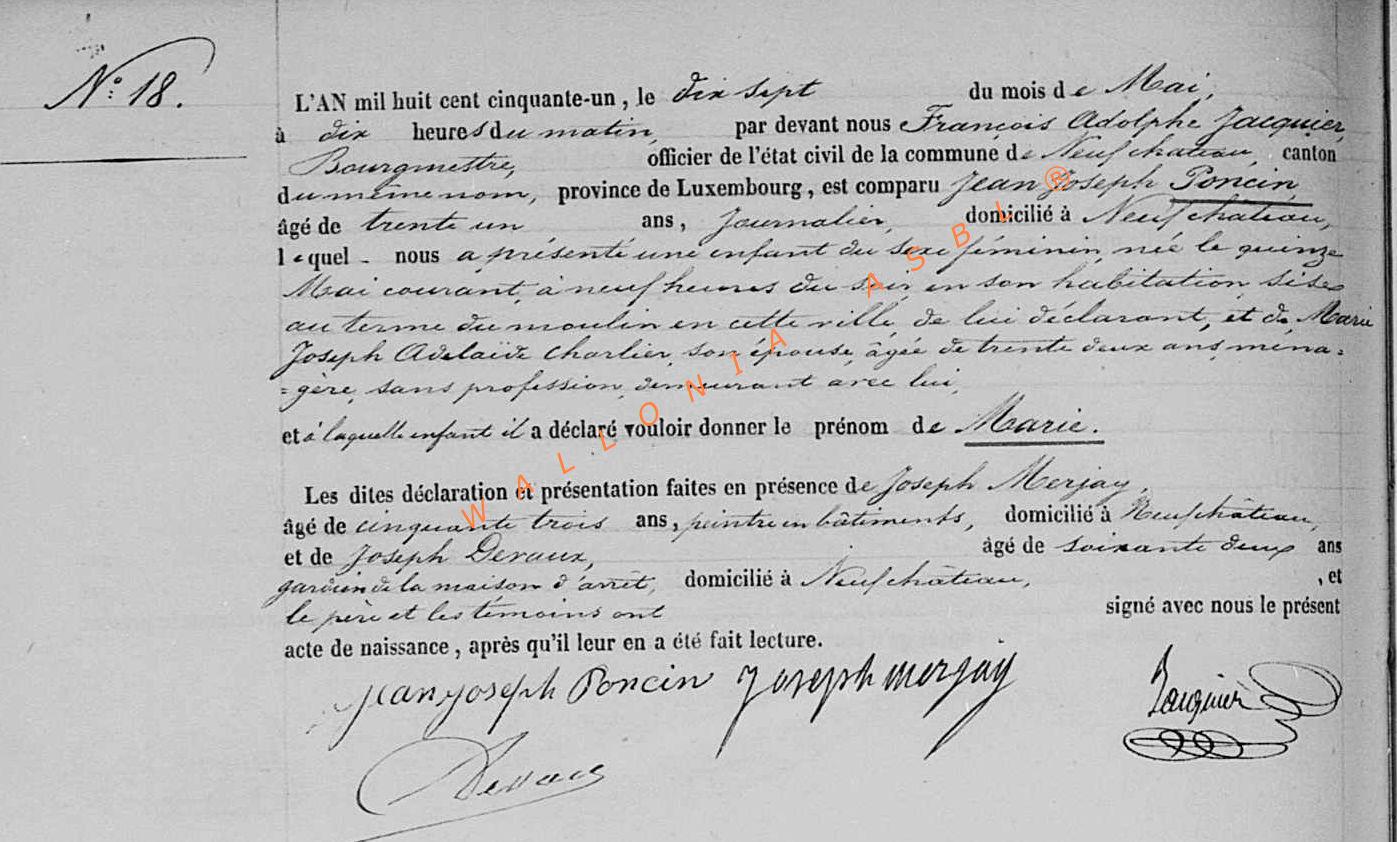 N° 18.
L'AN mil huit cent cinquante-un, le dix sept du mois de Mai,
à dix heures du matin, par devant nous François Adolphe Jacquier,
Bourgmestre, officier de l'état civil de la commune de Neufchateau, canton
du même nom, province de Luxembourg, est comparu Jean Joseph Poncin
âgé de trente un ans, Journalier, domicilié à Neufchateau,
lequel nous a présenté une enfant du sexe féminin, née le quinze
Mai courant, à neuf heures du soir en son habitation sise
au terme du moulin en cette ville, de lui déclarant, et de Marie
Joseph Adelaïde Charlier, son épouse, âgée de trente deux ans, ména=
=gère, sans profession, demeurant avec lui,
et à laquelle enfant il a déclaré vouloir donner le prénom de Marie.
Les dites déclaration et présentation faites en présence de Joseph Merjay,
âgé de cinquante trois ans, peintre en bâtiments, domicilié à Neufchâteau,
et de Joseph Devaux, âgé de soixante deux ans
gardien de la maison d'arrêt, domicilié à Neufchâteau, , et
le père et les témoins ont signé avec nous le présent
acte de naissance, après qu'il leur en a été fait lecture.
Jean Joseph Poncin Joseph Merjay Jacquier
Devaux
WALLONIA ASBL ®